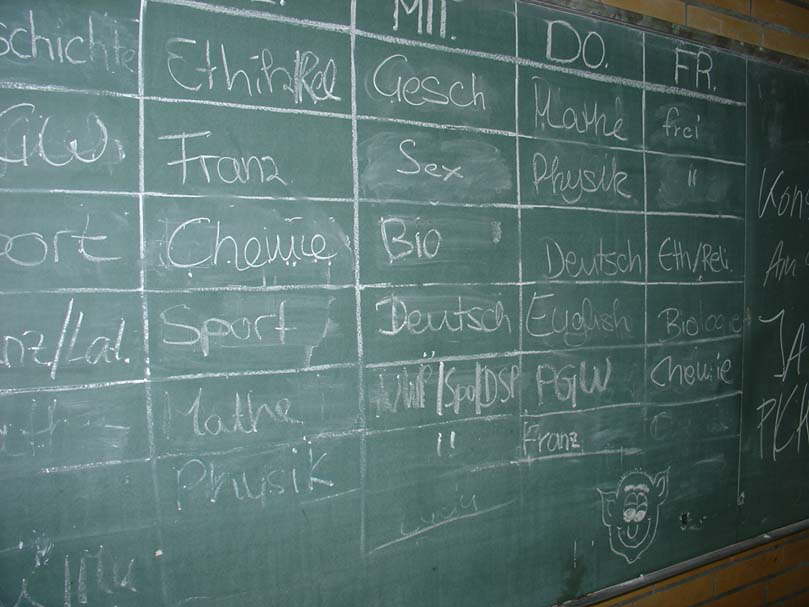 MIT. DO. FR.
schichte Ethik/Rel Gesch Mathe frei
GW. Franz Sex Physik "
port Chemie Bio Deutsch Eth/Reli.
nz/Lat. Sport Deutsch English Biologie
Mathe /Spo/DSP PGW Chemie
Physik " Franz
Kons
Am
JA
PCK